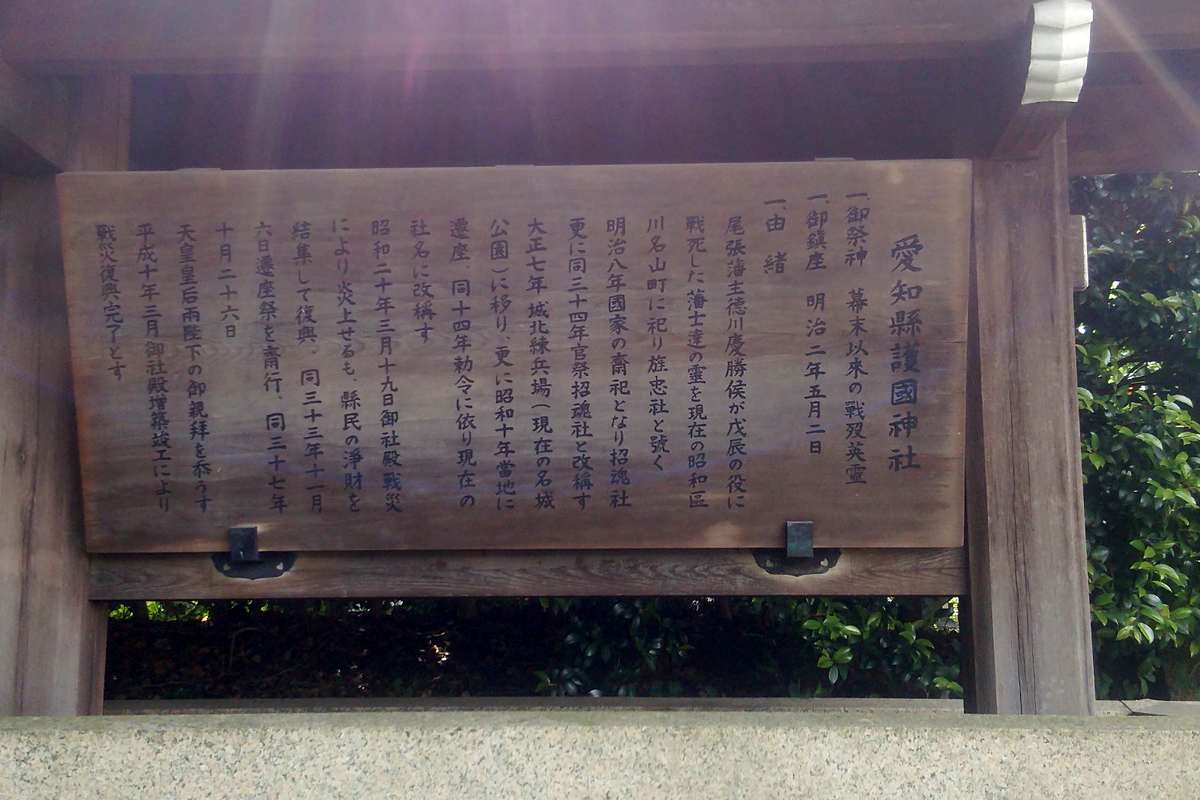 愛知縣護國神社
一、御祭神 幕末以來の戰歿英霊
一、御鎮座 明治二年五月二日
一、由緒
尾張藩主徳川慶勝侯が戊辰の役に
戰死した藩士達の靈を現在の昭和區
川名山町に祀り旌忠社と號く
明治八年國家の齋祀となり招魂社
更に同三十四年官祭招魂社と改稱す
大正七年城北練兵場(現在の名城
公園)に移り、更に昭和十年當地に
遷座、同十四年勅令に依り現在の
社名に改稱す
昭和二十年三月十九日御社殿戰災
により炎上せるも、縣民の淨財を
結集して復興、同三十三年十一月
六日遷座祭を齋行、同三十七年
十月二十六日
天皇皇后兩陛下の御親拜を忝うす
平成十年三月御社殿増築竣工により
戰災復興完了とす